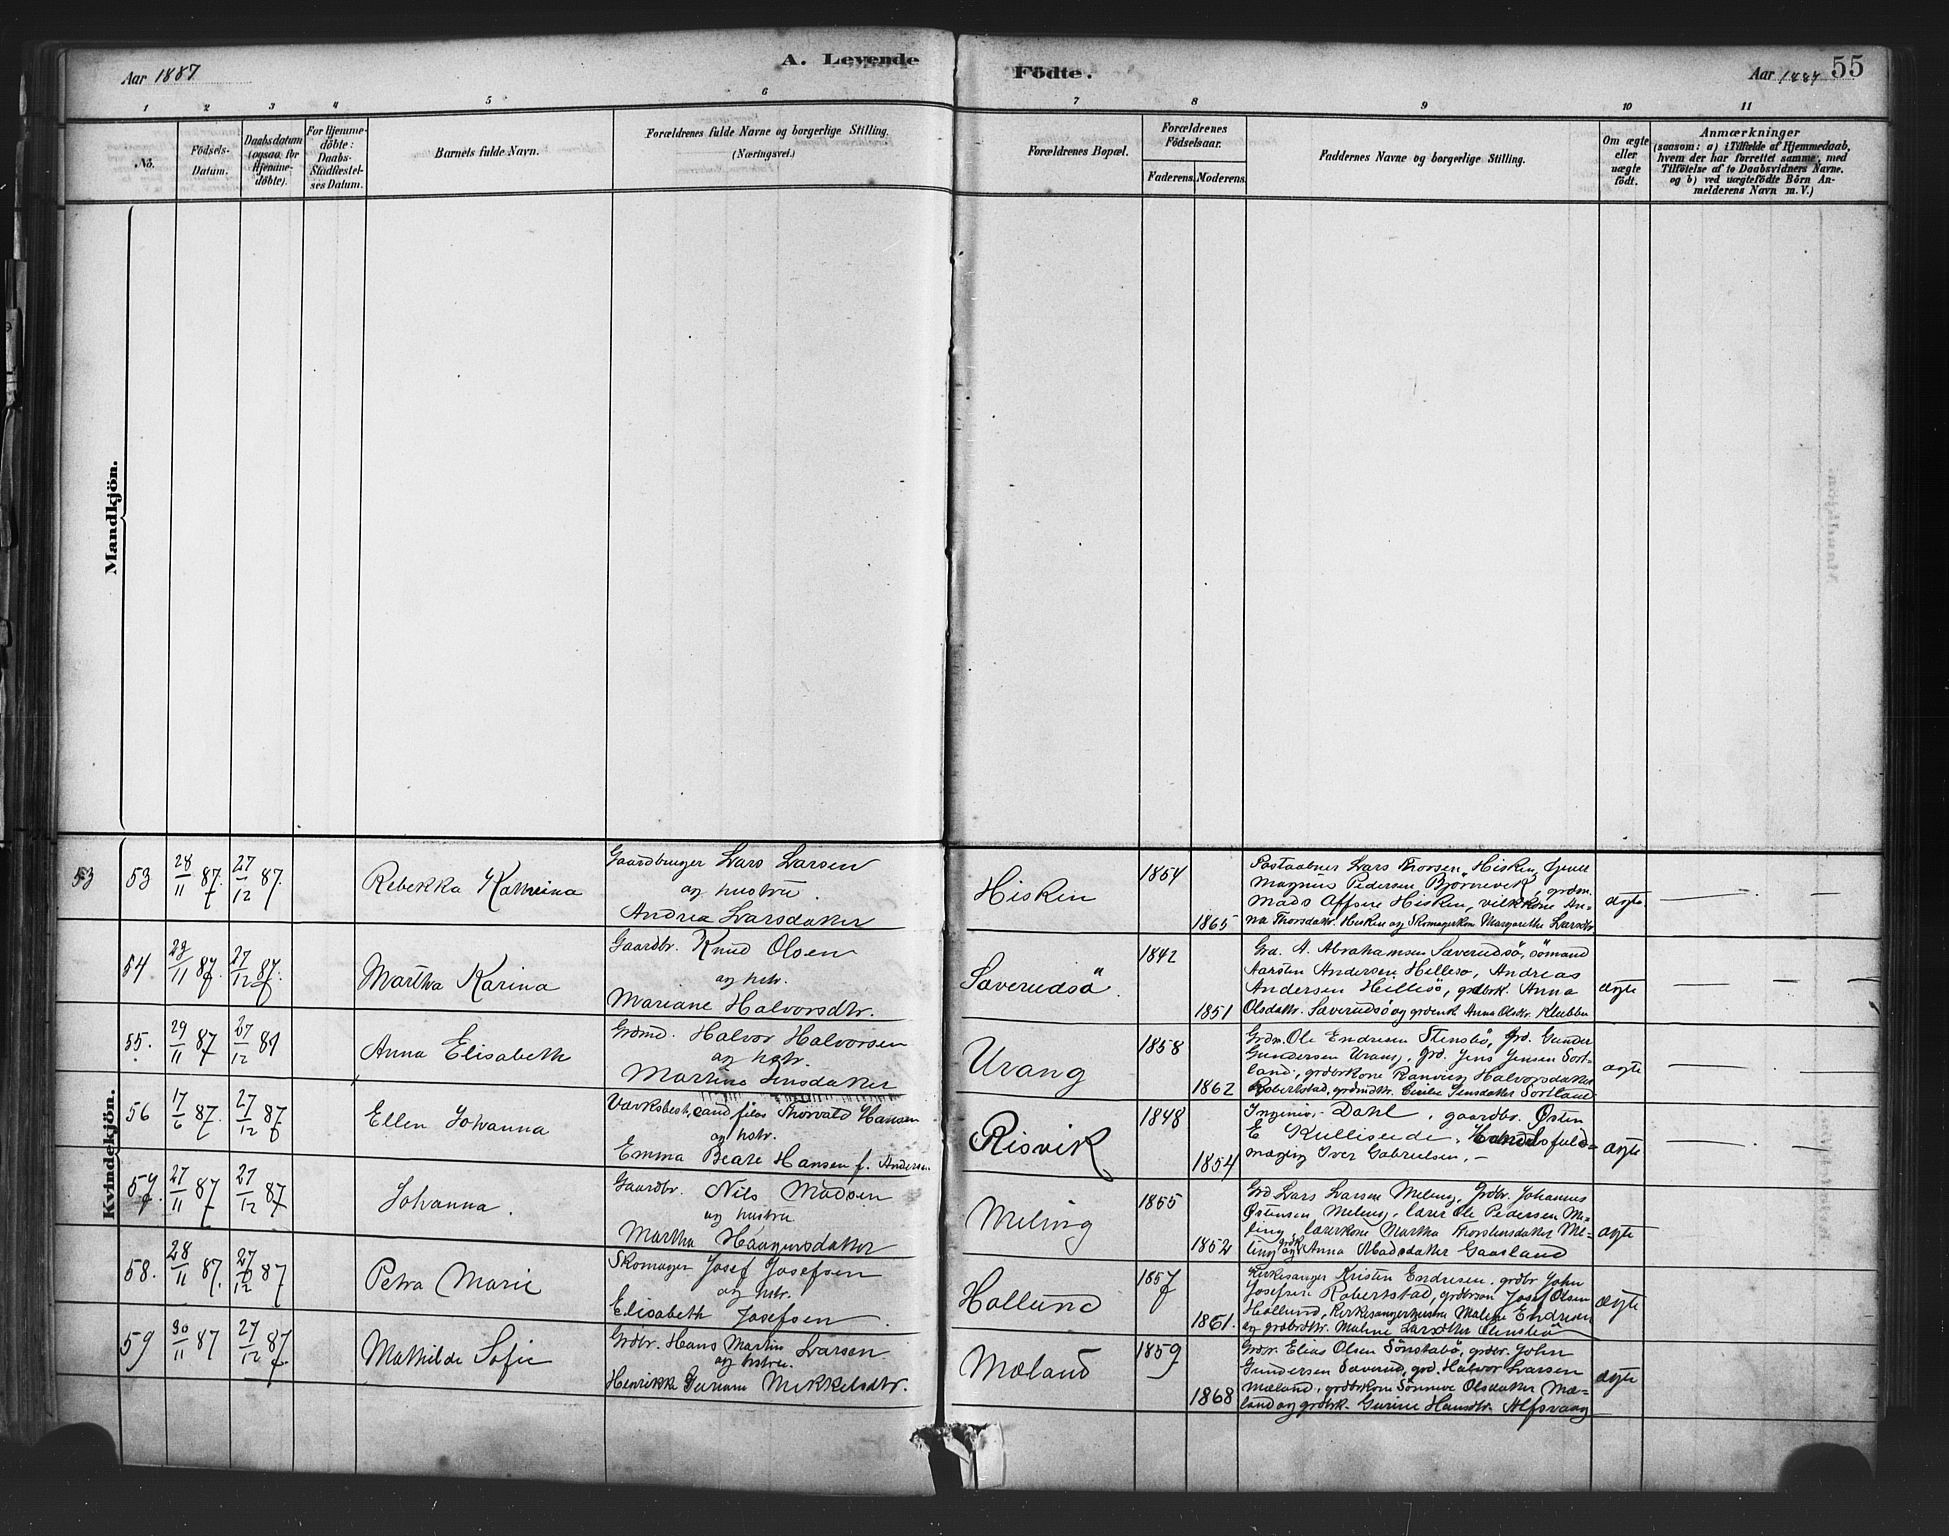 Aar 1887
A. Levende
Födte.
Aar 1887
55
1 2 3 4 5 6 7 8 9 10 11
No.
Födsels-
Datum.
Daabsdatum
(ogsaa for
Hjemme-
döbte).
For Hjemme-
döbte:
Daabs-
Stadfæstel-
ses Datum.
Barnets fulde Navn.
Forældrenes fulde Navne og borgerlige Stilling.
(Næringsvei.)
Forældrenes Bopæl.
Forældrenes
Födselsaar.
Faderens.
Moderens.
Faddernes Navne og borgerlige Stilling.
Om ægte
eller
uægte
födt.
Anmærkninger
(saasom: a) i Tilfælde af Hjemmedaab,
hvem der har forrettet samme, med
Tilföielse af to Daabsvidners Navne.
og b) ved uægtefödte Börn An-
melderens Navn m. V.)
Mandkjön.
Kvindekjön.
53 53 28/11 87. 27/12 87.
Rebekka Kathrina
Gaardbruger Lars Larsen
og hustru
Andrea Larsdatter
Hisken
1854
1865
Postaabner Lars Thorsen Hisken,
Magnus Pedersen Björnevik, grdm.
Mads Hisken,
na Thorsdatr. Hisken og Skomagerkone Margarethe Larsdtr
ægte
54. 11 87. 27/12 87.
Martha Karina
Gaardbr. Knud Olsen
og hstr.
Mariane Halvorsdtr.
Saverudsö
1842
1851
Grd. A. Abrahamsen Saverudsö, sömand
Aarsten Andersen Hellesö, Andreas
Andersen Hellesö, grdbrk. Anna
Olsdatr. Saverudsö og grdensk Anna Olsdtr. Klubben
ægte
55. 29/11 87 27/12 87
Anna Elisabeth
Grdmd. Halvor Halvorsen
og hstr.
Martina Jensdatter
Urang
1858
1862
Grdm. Ole Endresen Stensbö, Grd. Gunder
Gundersen Urang, Grd. Jens Jensen Sort-
land, grdbrkone Ranveig Halvorsdatter
Robertstad, grdmdtr. Cecilie Jensdatter Sortland
ægte
56 17/6 87. 27/12 87
Ellen Johanna
Værksbest, cand filos Thorvald Hansen
og hstr.
Emma Beate Hansen f. Andersen
Risvik
1848
1854
Ingeniör Dahl, gaardbr. Östen
E Kulliseide, Handelsfuld-
mægtig Iver Gabrielsen. –
ægte
57. 27/11 87 27/12 87
Johanna.
Gaardbr. Nils Madsen
og hustru
Martha Haagensdatter
Meling
1855
1852
Grd Lars Larsen Meling, Grdbr. Johannes
Östensen Meling, Lærer Ole Pedersen Me-
ling lærerkone Martha Thorstensdatter Me-
ling og grdk Anna Madsdatter Gaasland
ægte
58. 28/11 87. 27/12 87
Petra Marie
Skomager Josef Josefsen
og hstr.
Elisabeth Josefsen
Hollund
1857
1861.
Kirkesanger Kristen Endresen, grdbr John
Josefsen Robertstad, grdmson Josef Olsen
Hollund, Kirkesangerhustru Malene Endresen
og grdbrdtr. Maline Larsdtter Stensbö
ægte
59 30/11 87 27/12 87
Mathilde Sofie
Grdbr. Hans Martin Larsen
og hstru.
Henrikka Mikkelsdtr.
Mæland
1859
1868
Grdbr. Elias Olsen Sönstabö, grdbr. John
Gundersen Saverud, grd. Halvor Larsen
Mæland, grdbrkone Sönneve Olsdatter Mæ-
land og grdbrk. Gurine Hansdtr. Alfsvaag
ægte